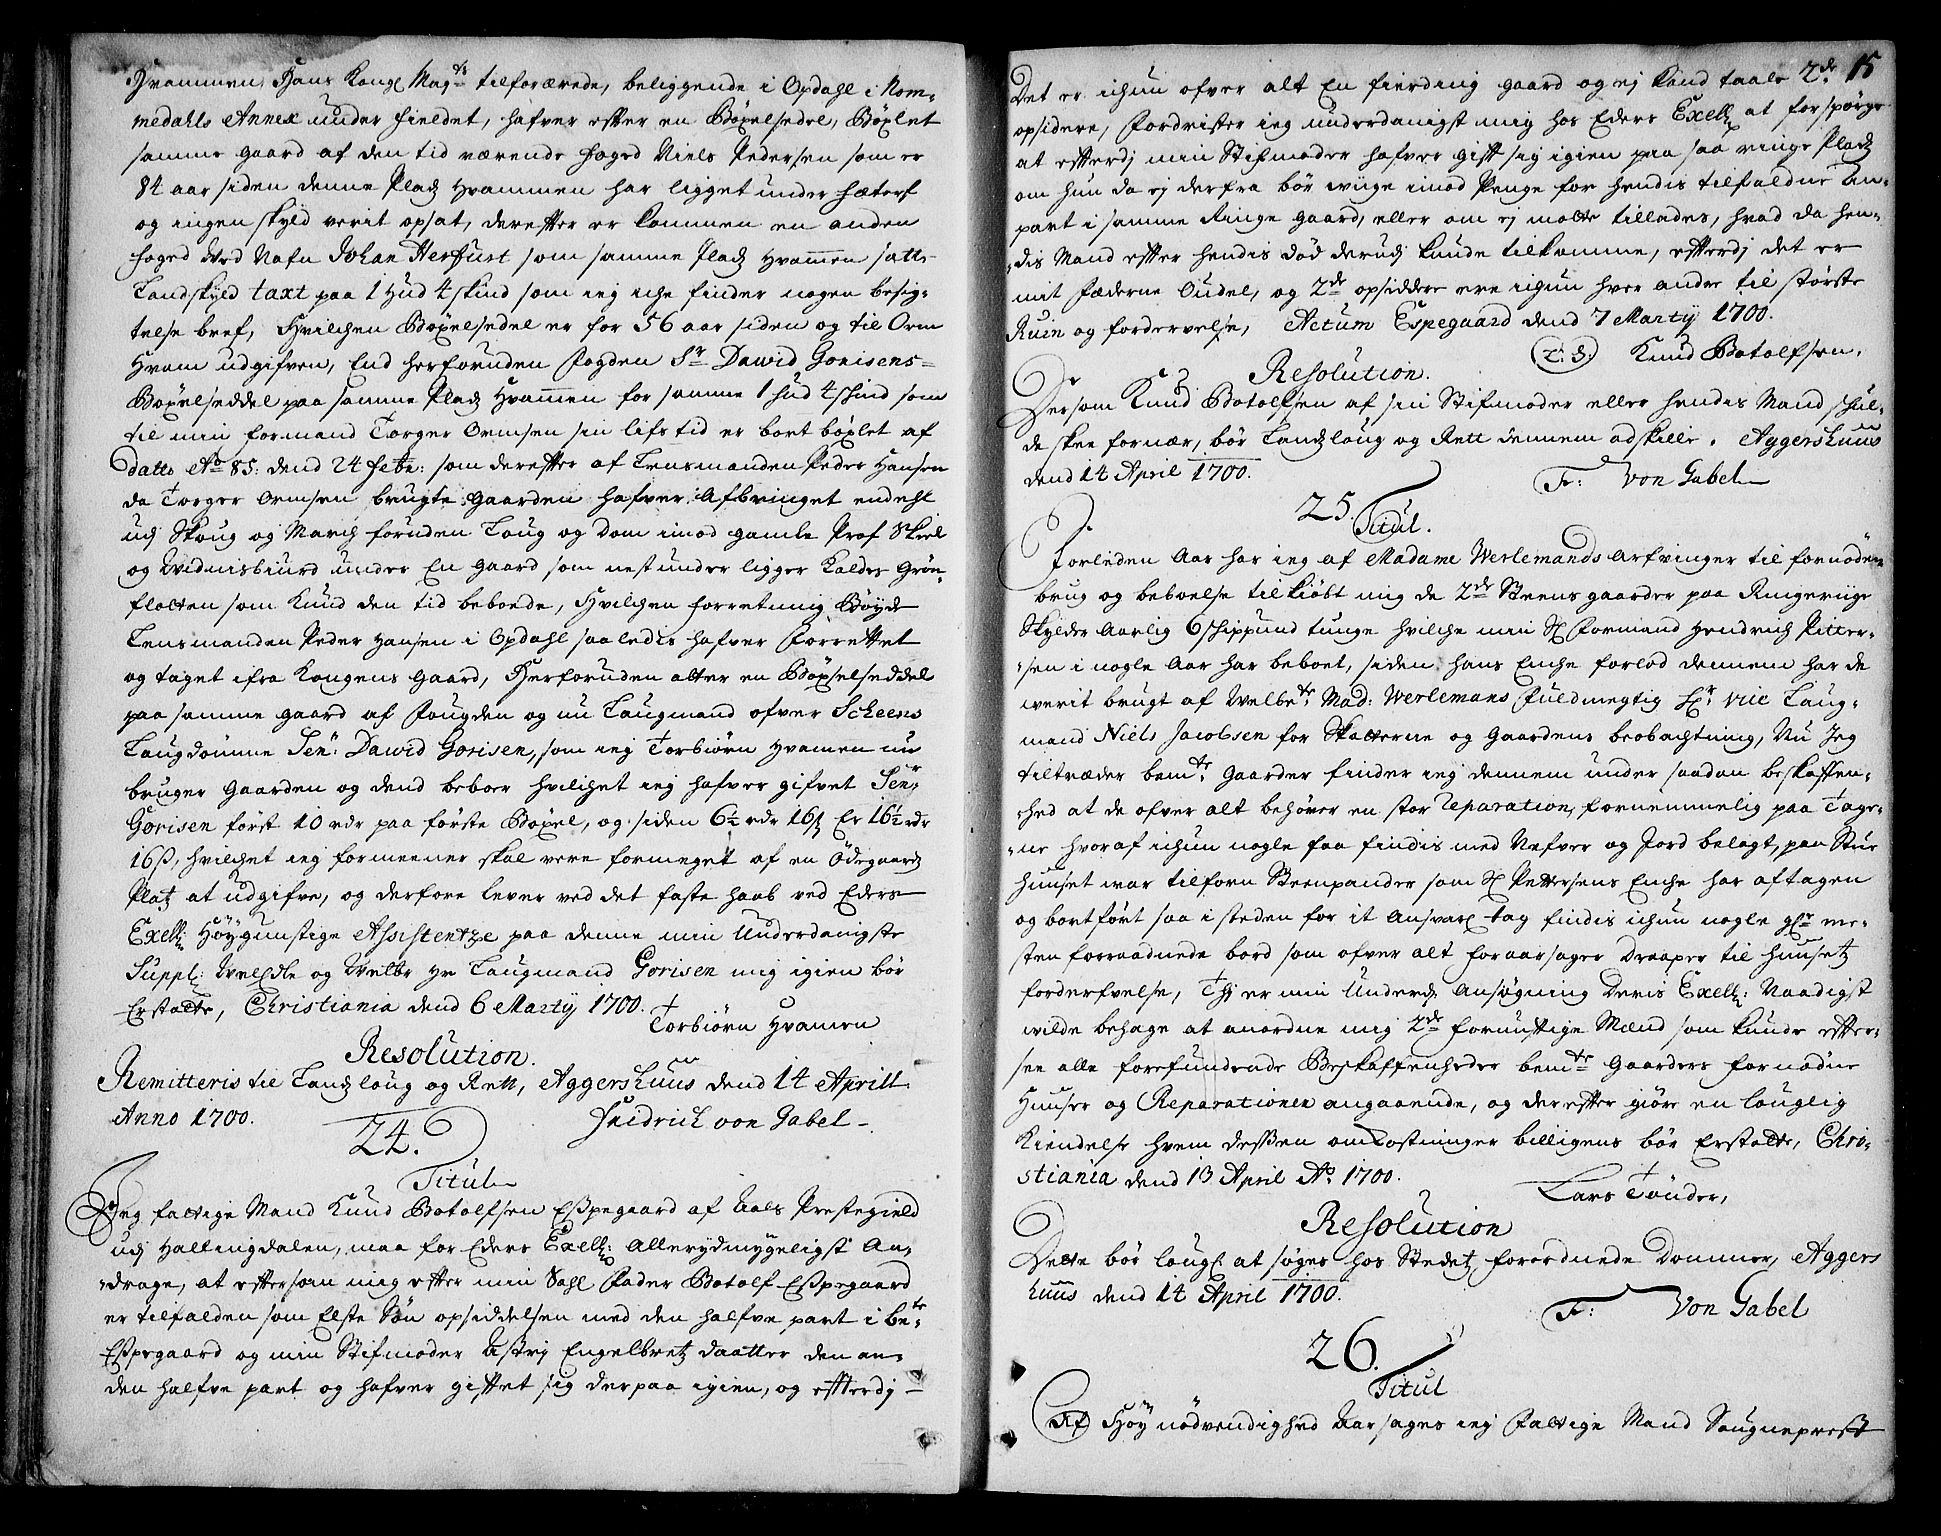 Hvammen, Hans Kongl Mag:ts tilforærede, beliggende i Opdahl i Nom-
medahls Annex under fieldet, hafver efter en Böxelsedel, Böxlet
samme gaard af den tid værende foged Niels Pedersen som er
84 aar siden denne Pladz Hvammen har ligget under
og ingen skyld verit opsat, derefter er kommen en anden
foged ved Nafn Johan Herfurt som samme Pladz Hvammen satte
Landskyld taxt paa 1 Hud 4 skind som ieg iche finder nogen besig-
telse bref, Hvilchen Böxelsedel er for 56 aar siden og til Orm
Hvam udgifven, End herforuden Fogden Sr Dawid Gorisens
Böxelseddel paa samme Pladz Hvammen for samme 1 hud 4 schind som
til min formand Torger Ormsen sin lifs tid er bort böxlet af
datto Ao 85: dend 24 febr: som derefter af Lensmanden Peder Hansen
da Torger Ormsen brugte Gaarden hafver Afbringet endehl
udj Skoug og March foruden Laug og Dom imod gamle Prof Skiel
og Widnisbiurd under En Gaard som nest under ligger Kaldes Grön-
flatten som Knud den tid beboede, Hvilchen forretning Böyde
Lensmanden Peder Hansen i Opdahl saaledis hafver Forrettet
og taget ifra Kongens Gaard, Herforuden atter en Böxelseddel
paa samme gaard af Fougden og nu Laugmand ofver Scheens
Laugdömme Senr: Dawid Gorisen, som ieg Torbiörn Hvamen nu
bruger Gaarden og dend beboer hvilchet ieg hafver gifvet Senr
Gorisen först 10 rdr paa förste Böxel, og siden 6½ rdr 16ß Er 16½ rdr
16ß, hvilchet ieg formeener skal vere formeget af en Ödegaards
Platz at udgifve, og derfore lever ved det faste haab ved Eders
Exell: Höygunstige Assistentze paa denne min Underdanigste
Suppl: WelEdle og Welbr Hr Laugmand Gorisen mig igien bör
Erstatte, Christiania dend 6 Martij 1700.
Torbiörn Hvamen
Resolution.
Remitteris til Landzloug og Rett, Aggershuus dend 14 Aprill
Anno 1700.
Fridrich von Gabel
24.
Titul
Jeg fattige Mand Knud Botolfsen Espegaard af Aals Prestegield
udj Hallingdalen, maa for Eders Exell: Allerydmygeligst An-
drage, at eftersom mig efter min Sahl Fader Botolf Espegaard
er tilfalden som Elste Sön opsiddelsen med den halfve part i be:te
Espegaard og min Stifmoder Astrj Engelbretz daatter den an-
den halfve part og hafver giftet sig derpaa igien, og efterdj
15
Det er ichun ofver alt En fierding gaard og ej kand taale 2de
opsidere, Fordrister ieg underdanigst mig hos Eders Exell at forspörge
at efterdj min Stifmoder hafver gift sig igien paa saa ringe Pladz
om hun da ej derfra bör wige imod Penge for hendis tilfaldne An-
part i samme Ringe gaard, eller om ej matte tillades, hvad da hen-
dis Mand efter hendis död derudj kunde tilkomme, efterdj det er
mit Fæderne Oudel, og 2de opsiddere ere ichun hver andre til störste
Ruin og fordervelse, Actum Espegaard dend 7 Martij 1700.
Knud Botolfsen.
Resolution.
Dersom Knud Botolfsen af sin Stifmoder eller hendis Mand schul-
de skee fornær, bör Landzloug og Rett dennem adskille. Aggershuus
dend 14 April 1700.
Fr: von Gabel
25.
Titul.
Forleden Aar har ieg af Madame Werlemands Arfvinger til fornöden
brug og beboelse tilkiöbt mig de 2de Steens gaarder paa Ringeriige
Skylder Aarlig 6 schippund tunge hvilche min Sl Formand Hendrich Pitter-
sen i nogle Aar har beboet, siden hans Enche forlod dennem har de
werit brugt af Welbe:te Mad: Werlemans Fuldmegtig Hr vice Laug-
mand Niels Jacobsen for Skatterne og Gaardens beobachtning, Nu Jeg
tiltræder bem:te Gaarder finder ieg dennem under saadan beskaffen-
hed at de ofver alt behöver en stor reparation, fornemmelig paa Tage-
ne hvoraf ichun nogle faa findis med Nefver og Jord belagt, paa Stue
huuset war tilforn Steenpander som Sl Pettersens Enche har aftagen
og bortfört saa isteden for it Ansvarl tag findis ichun nogle gle me-
sten forraadnede bord som ofver alt foraarsager Draaper til huusetz
forderfvelse, Thj er min Underd. Ansögning Deris Exell: Naadigst
wilde behage at anordne mig 2de fornuftige Mænd som kunde efter-
see alle forefundende Beskaffenheder bem:te Gaarders fornödne
Huuser og Reparationen angaaende, og derefter giöre en louglig
Kiendelse hvem dessen omkostninger billigens bör Erstatte, Chri-
stiania dend 13 April Ao 1700.
Lars Tönder,
Resolution
Dette bör lougl: at söges hos Stedetz forordnede Dommer, Aggers
huus dend 14 April 1700.
Fr: von Gabel
26.
Titul
Af Höy nödvendighed Aarsages ieg Fattige Mand Sougneprest